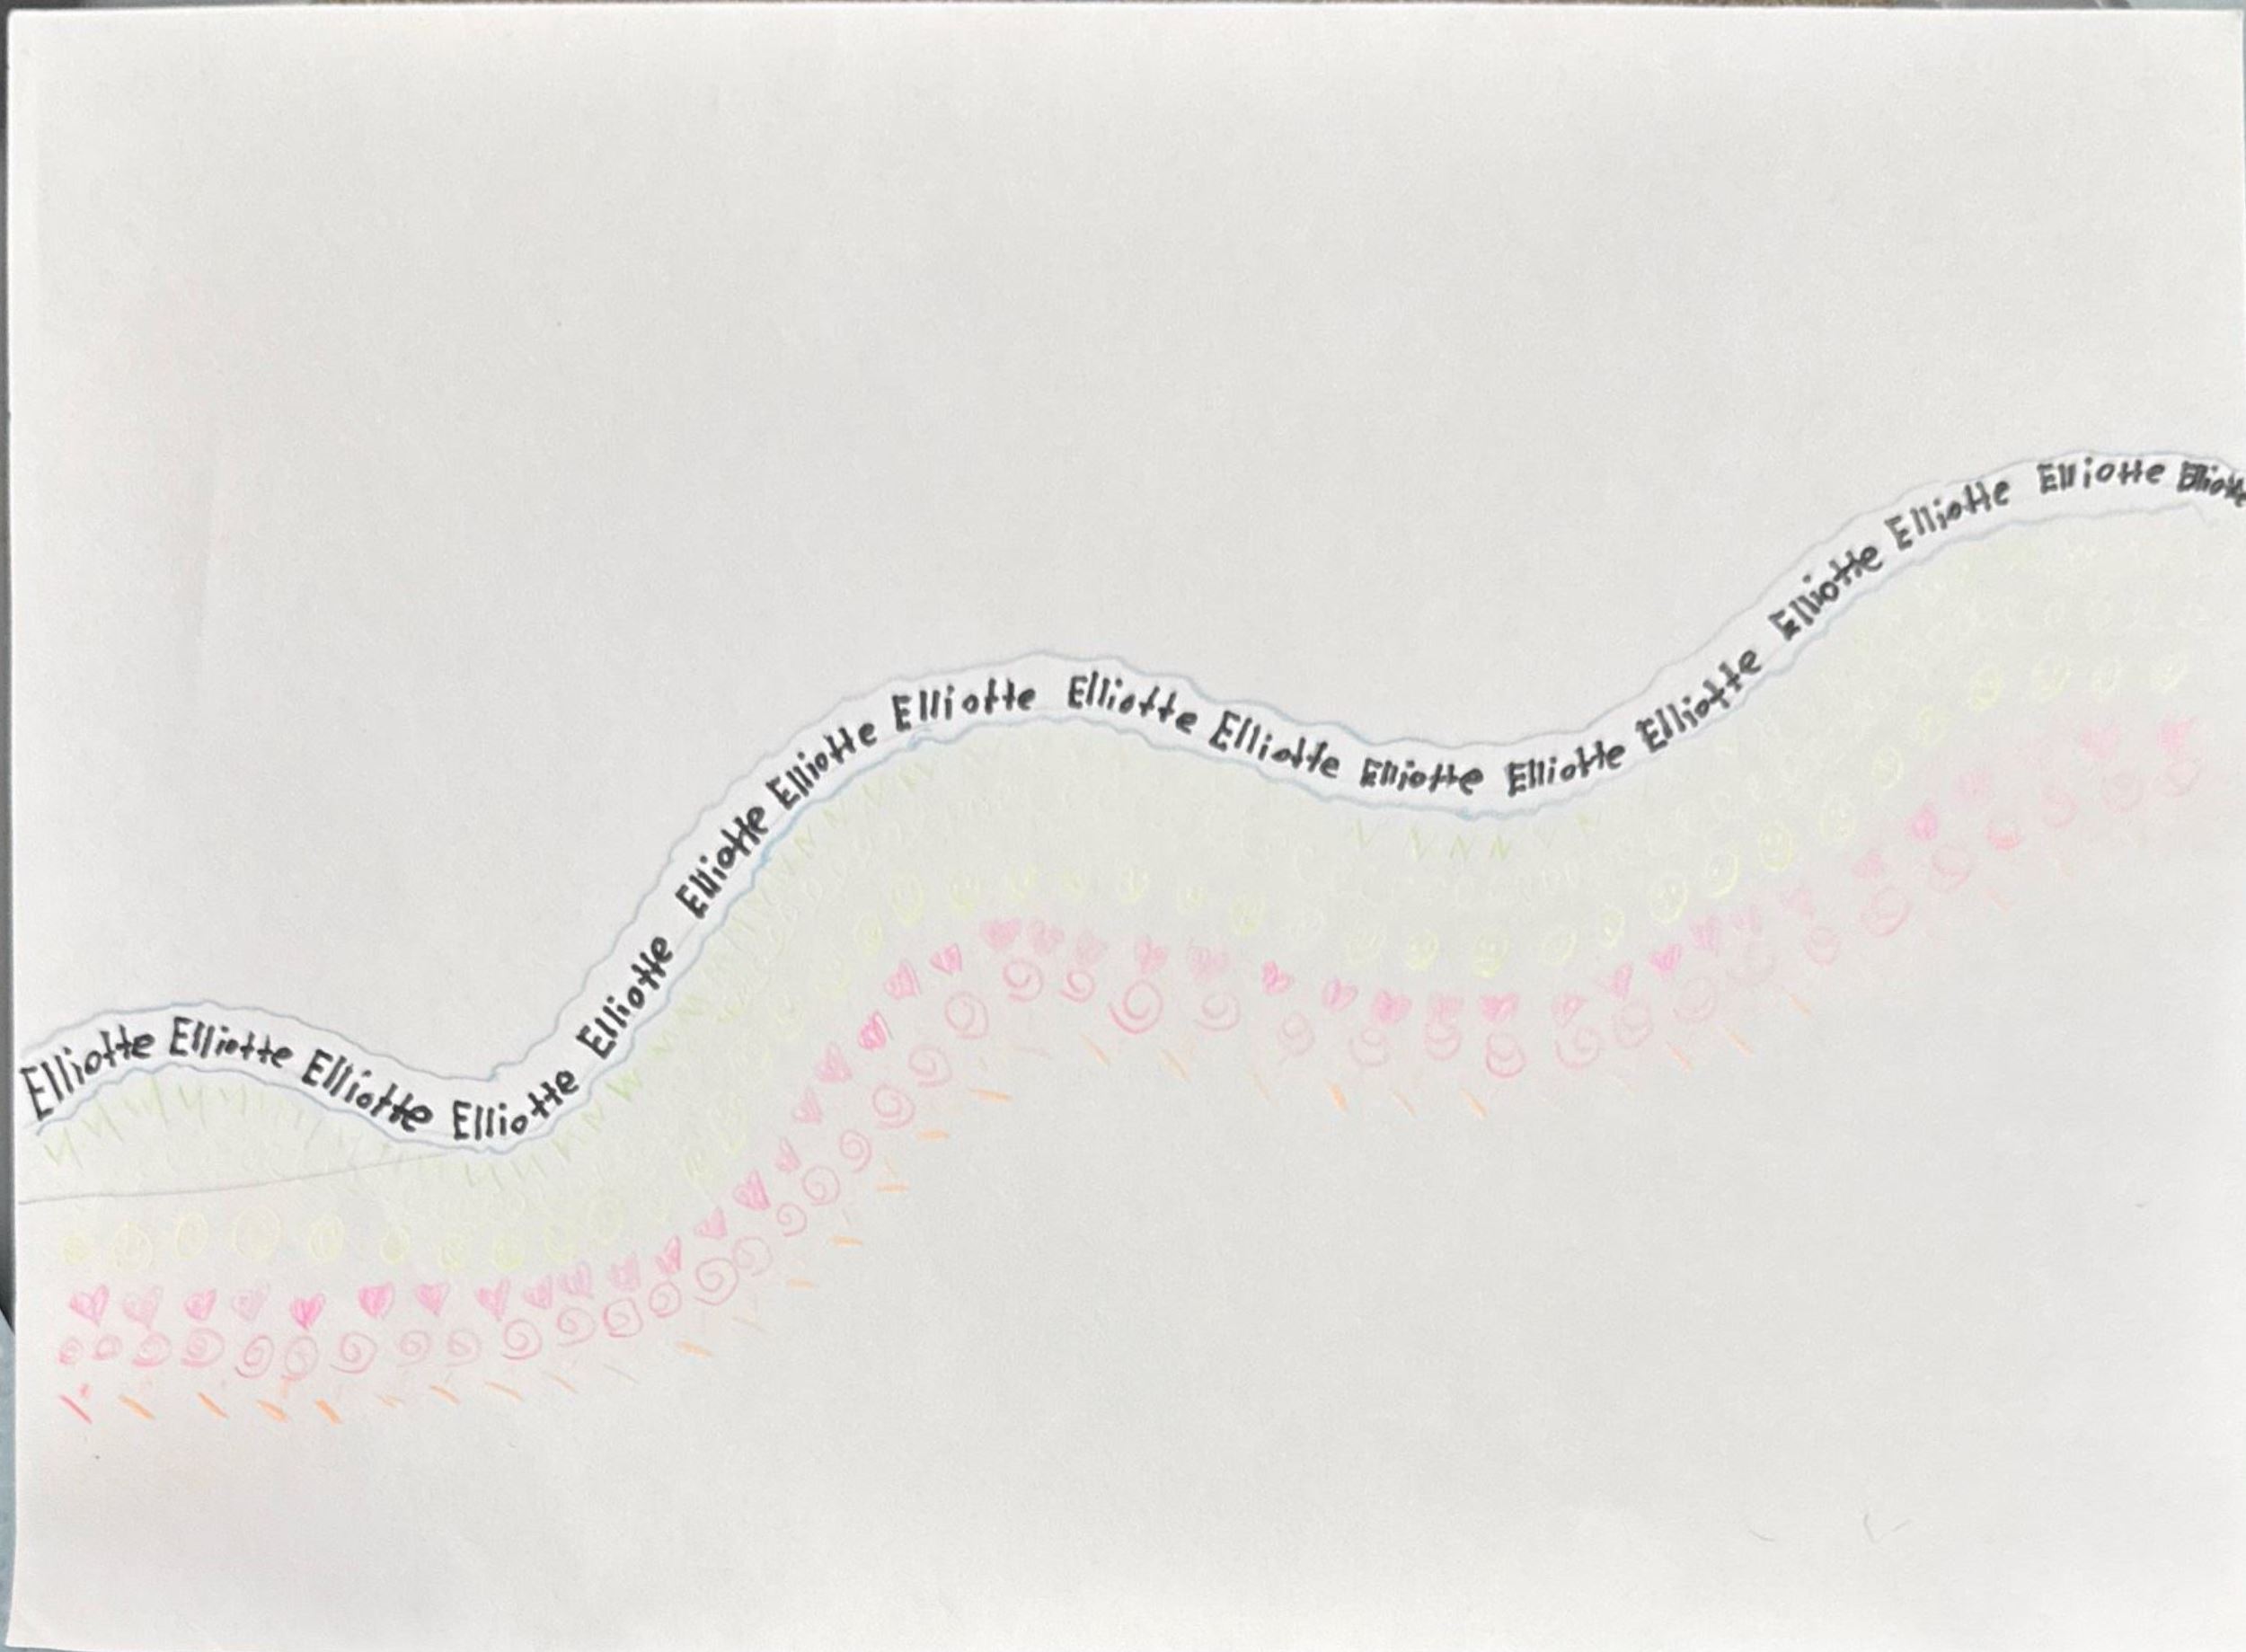 Elliotte Elliotte Elliotte Elliotte Elliotte Elliotte Elliotte Elliotte Elliotte Elliotte Elliotte Elliotte Elliotte Elliotte Elliotte Elliotte Elliotte